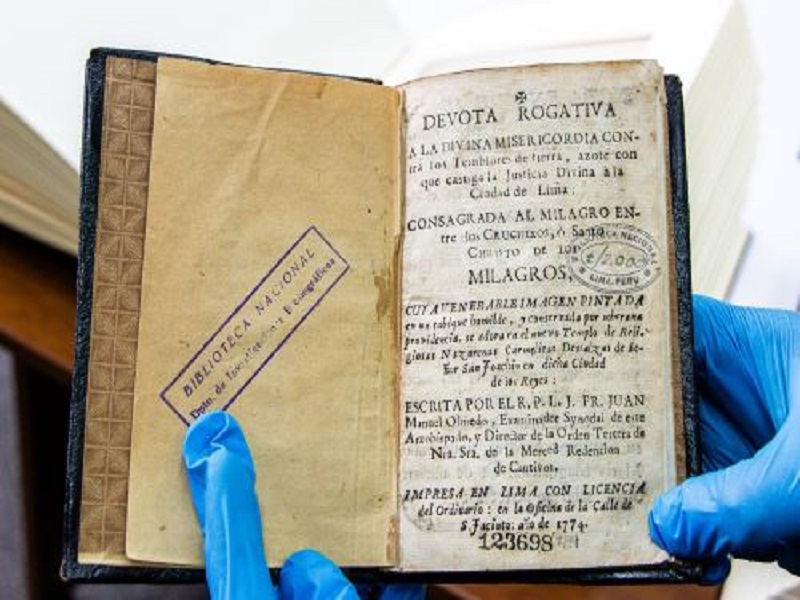 BIBLIOTECA NACIONAL
Dpto. de
DEVOTA ROGATIVA
A LA DIVINA MISERICORDIA CON-
tra los Temblores de tierra, azote con
que castiga la Justicia Divina à la
Ciudad de Lima:
CONSAGRADA AL MILAGRO EN-
tre los CRUCIFIXOS, ô Santo
CHRISTO DE LOS
MILAGROS,
BIBLIOTECA NACIONAL
LIMA-PERU
CUYA VENERABLE IMAGEN PINTADA
en un tabique humilde, y conservada por soberana
providencia, se adora en el nuevo Templo de Reli-
giosas Nazarenas Carmelitas Descalzas de Se-
ñor San Joachin en dicha Ciudad
de los Reyes:
ESCRITA POR EL R. P. L. J. FR. JUAN
Manuel Olmedo, Examinador Synodal de este
Arzobispado, y Director de la Orden Tercera de
Nra. Sra. de la Merced Redencion
de Cautivos.
IMPRESA EN LIMA CON LICENCIA
del Ordinario: en la Oficina de la Calle de
S. Jacinto: año de 1774.
123698